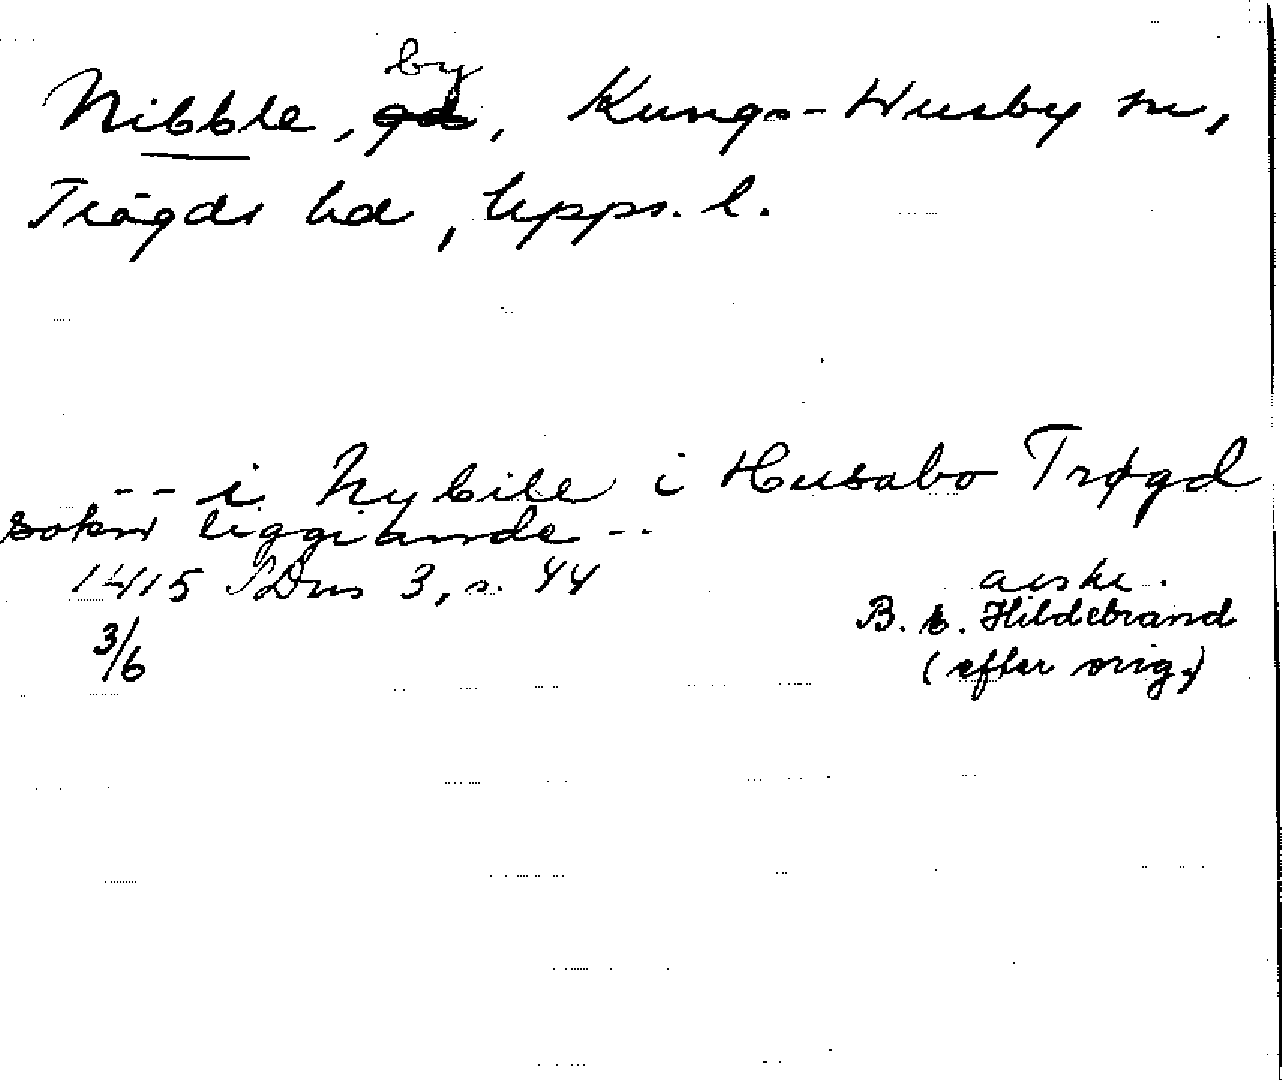 by
Nibble, gd, Kungs-Husby sn,
Trögds hd, Upps. l.
-- i Nybile i Husabo Trøgd
sokn liggiande --
1415 SDns 3, s. 44 avskr.
3/6 B. E. Hildebrand
(efter orig.)